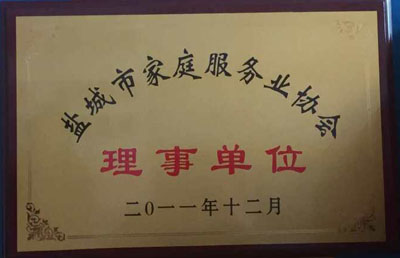 盐城市家庭服务业协会
理事单位
二0一一年十二月